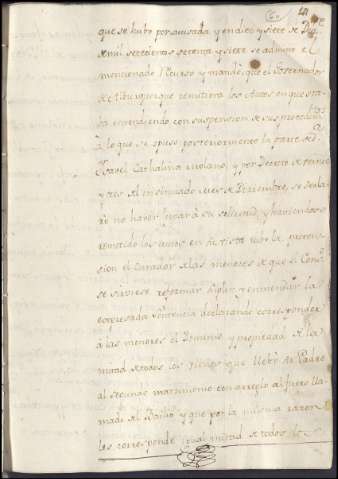 que se hubo por acusada y en diez y siete de Dizre
de mil setecientos setenta y siete se admitio el
mencionado Recurso y mandò que el Governador
de Alburquerque remitiera los Autos en que esta
ba entendiendo, con suspension de sus procedimtos
à lo que se opuso posteriormente la parte de Da
Ysavel Cathalina
y tres del insinuado mes de Diciembre, se decla
rò no haver lugar à su solicitud, y haviendose
remitido los Autos, en su vista la preten
sion el Curador de las menores de que el Consejo
se sirviese reformar, suplir, y enmendar la
expresada Sentencia declarando corresponder
à las menores el Dominio y propiedad de la
mitad de todos los vienes que llebò su Padre
al segundo matrimonio con arreglo al fuero lla
mado del Bailio y que por la misma razon
les corresponde igual mitad de todos los